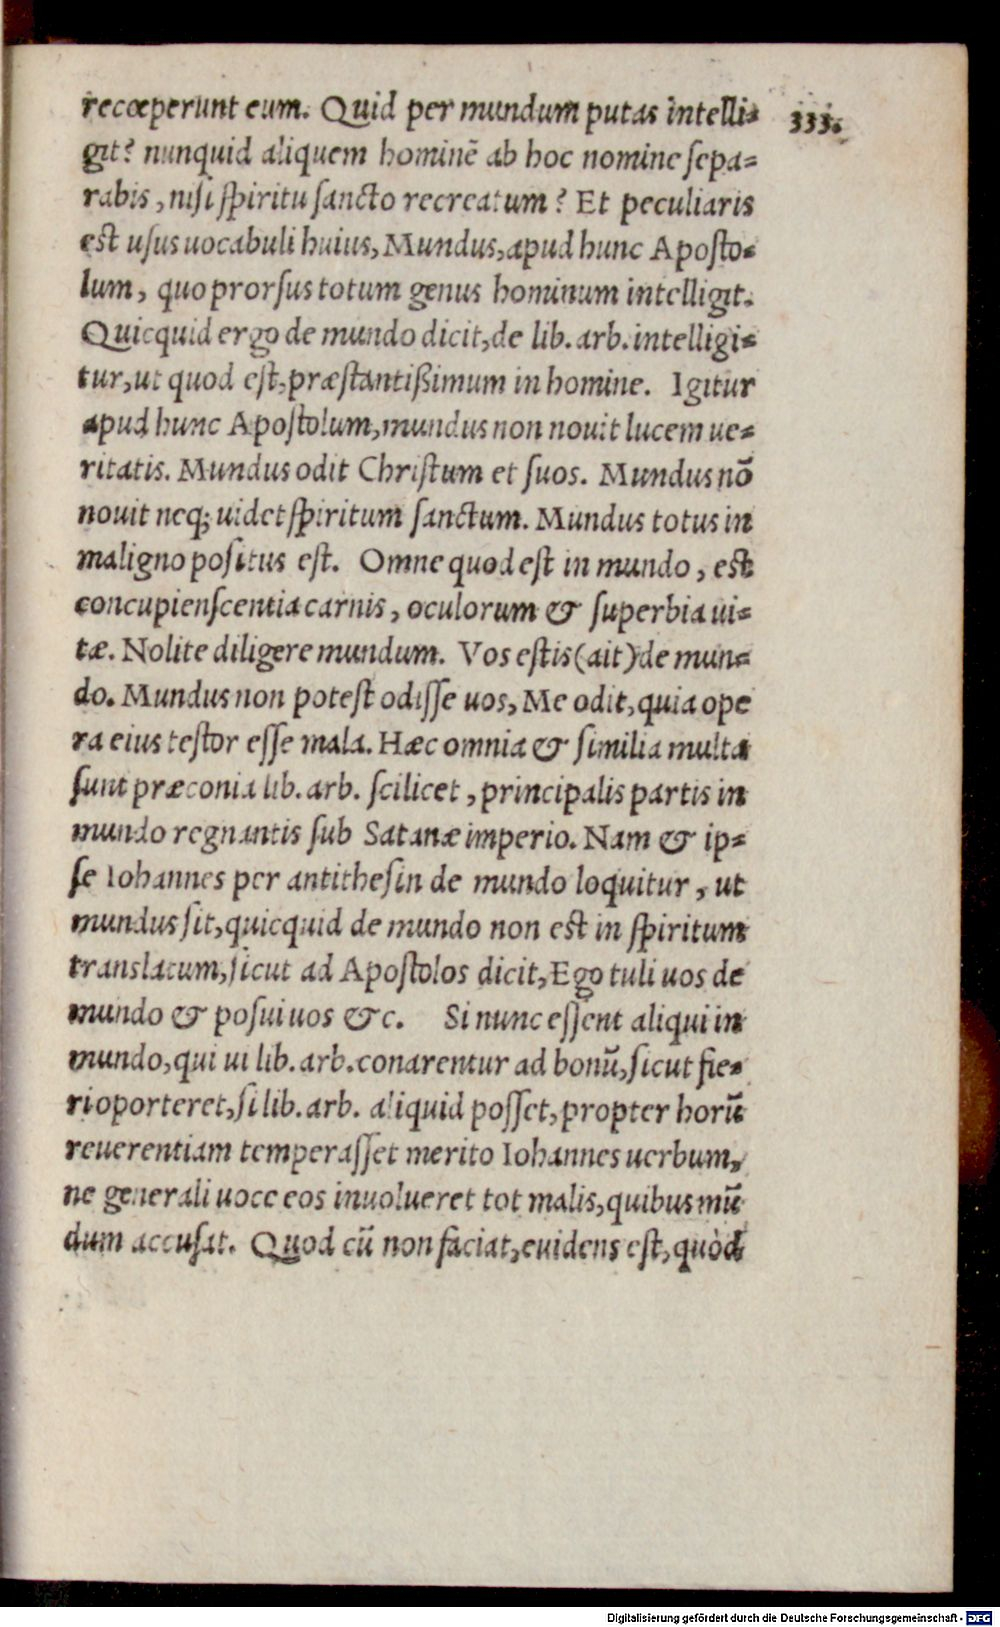 recœperunt eum. Quid per mundum putas intelli=
333.
git? nunquid aliquem hominē ab hoc nomine sepa=
rabis, nisi spiritu sancto recreatum? Et peculiaris
est usus uocabuli huius, Mundus, apud hunc Aposto=
lum, quo prorsus totum genus hominum intelligit.
Quicquid ergo de mundo dicit, de lib. arb. intelligi=
tur, ut quod est, præstantißimum in homine. Igitur
apud hunc Apostolum, mundus non nouit lucem ue=
ritatis. Mundus odit Christum et suos. Mundus nō
nouit neq; uidet spiritum sanctum. Mundus totus in
maligno positus est. Omne quod est in mundo, est
concupienscentia carnis, oculorum & superbia ui=
tæ. Nolite diligere mundum. Vos estis (ait) de mun=
do. Mundus non potest odisse uos, Me odit, quia ope
ra eius testor esse mala. Hæc omnia & similia multa
sunt præconia lib. arb. scilicet, principalis partis in
mundo regnantis sub Satanæ imperio. Nam & ip=
se Iohannes per antithesin de mundo loquitur, ut
mundus sit, quicquid de mundo non est in spiritum
translatum, sicut ad Apostolos dicit, Ego tuli uos de
mundo & posui uos &c. Si nunc essent aliqui in
mundo, qui ui lib. arb. conarentur ad bonū, sicut fie=
ri oporteret, si lib. arb. aliquid posset, propter horū
reuerentiam temperasset merito Iohannes uerbum,
ne generali uoce eos inuolueret tot malis, quibus mū
dum accusat. Quod cū non faciat, euidens est, quòd
Digitalisierung gefördert durch die Deutsche Forschungsgemeinschaft - DFG